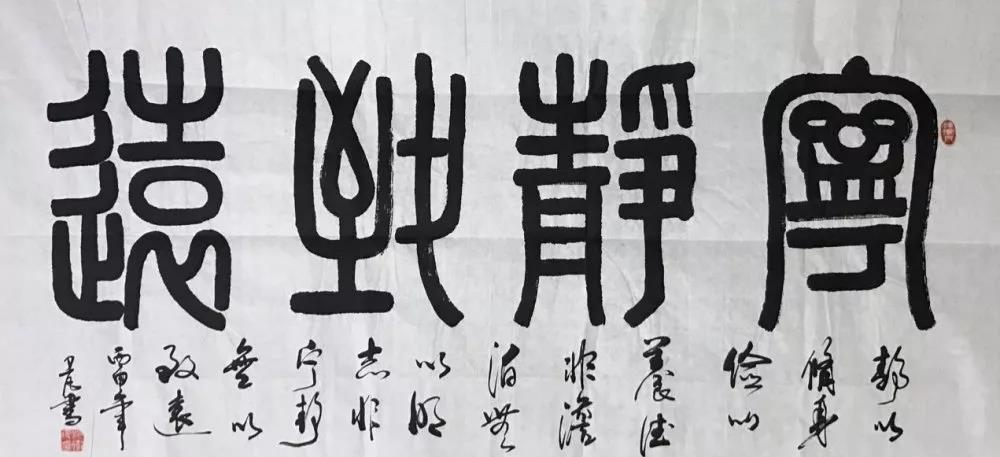 寧靜致遠
靜以
脩身
儉以
養德
非澹
泊無
以明
志非
宁靜
無以
致遠
年
書